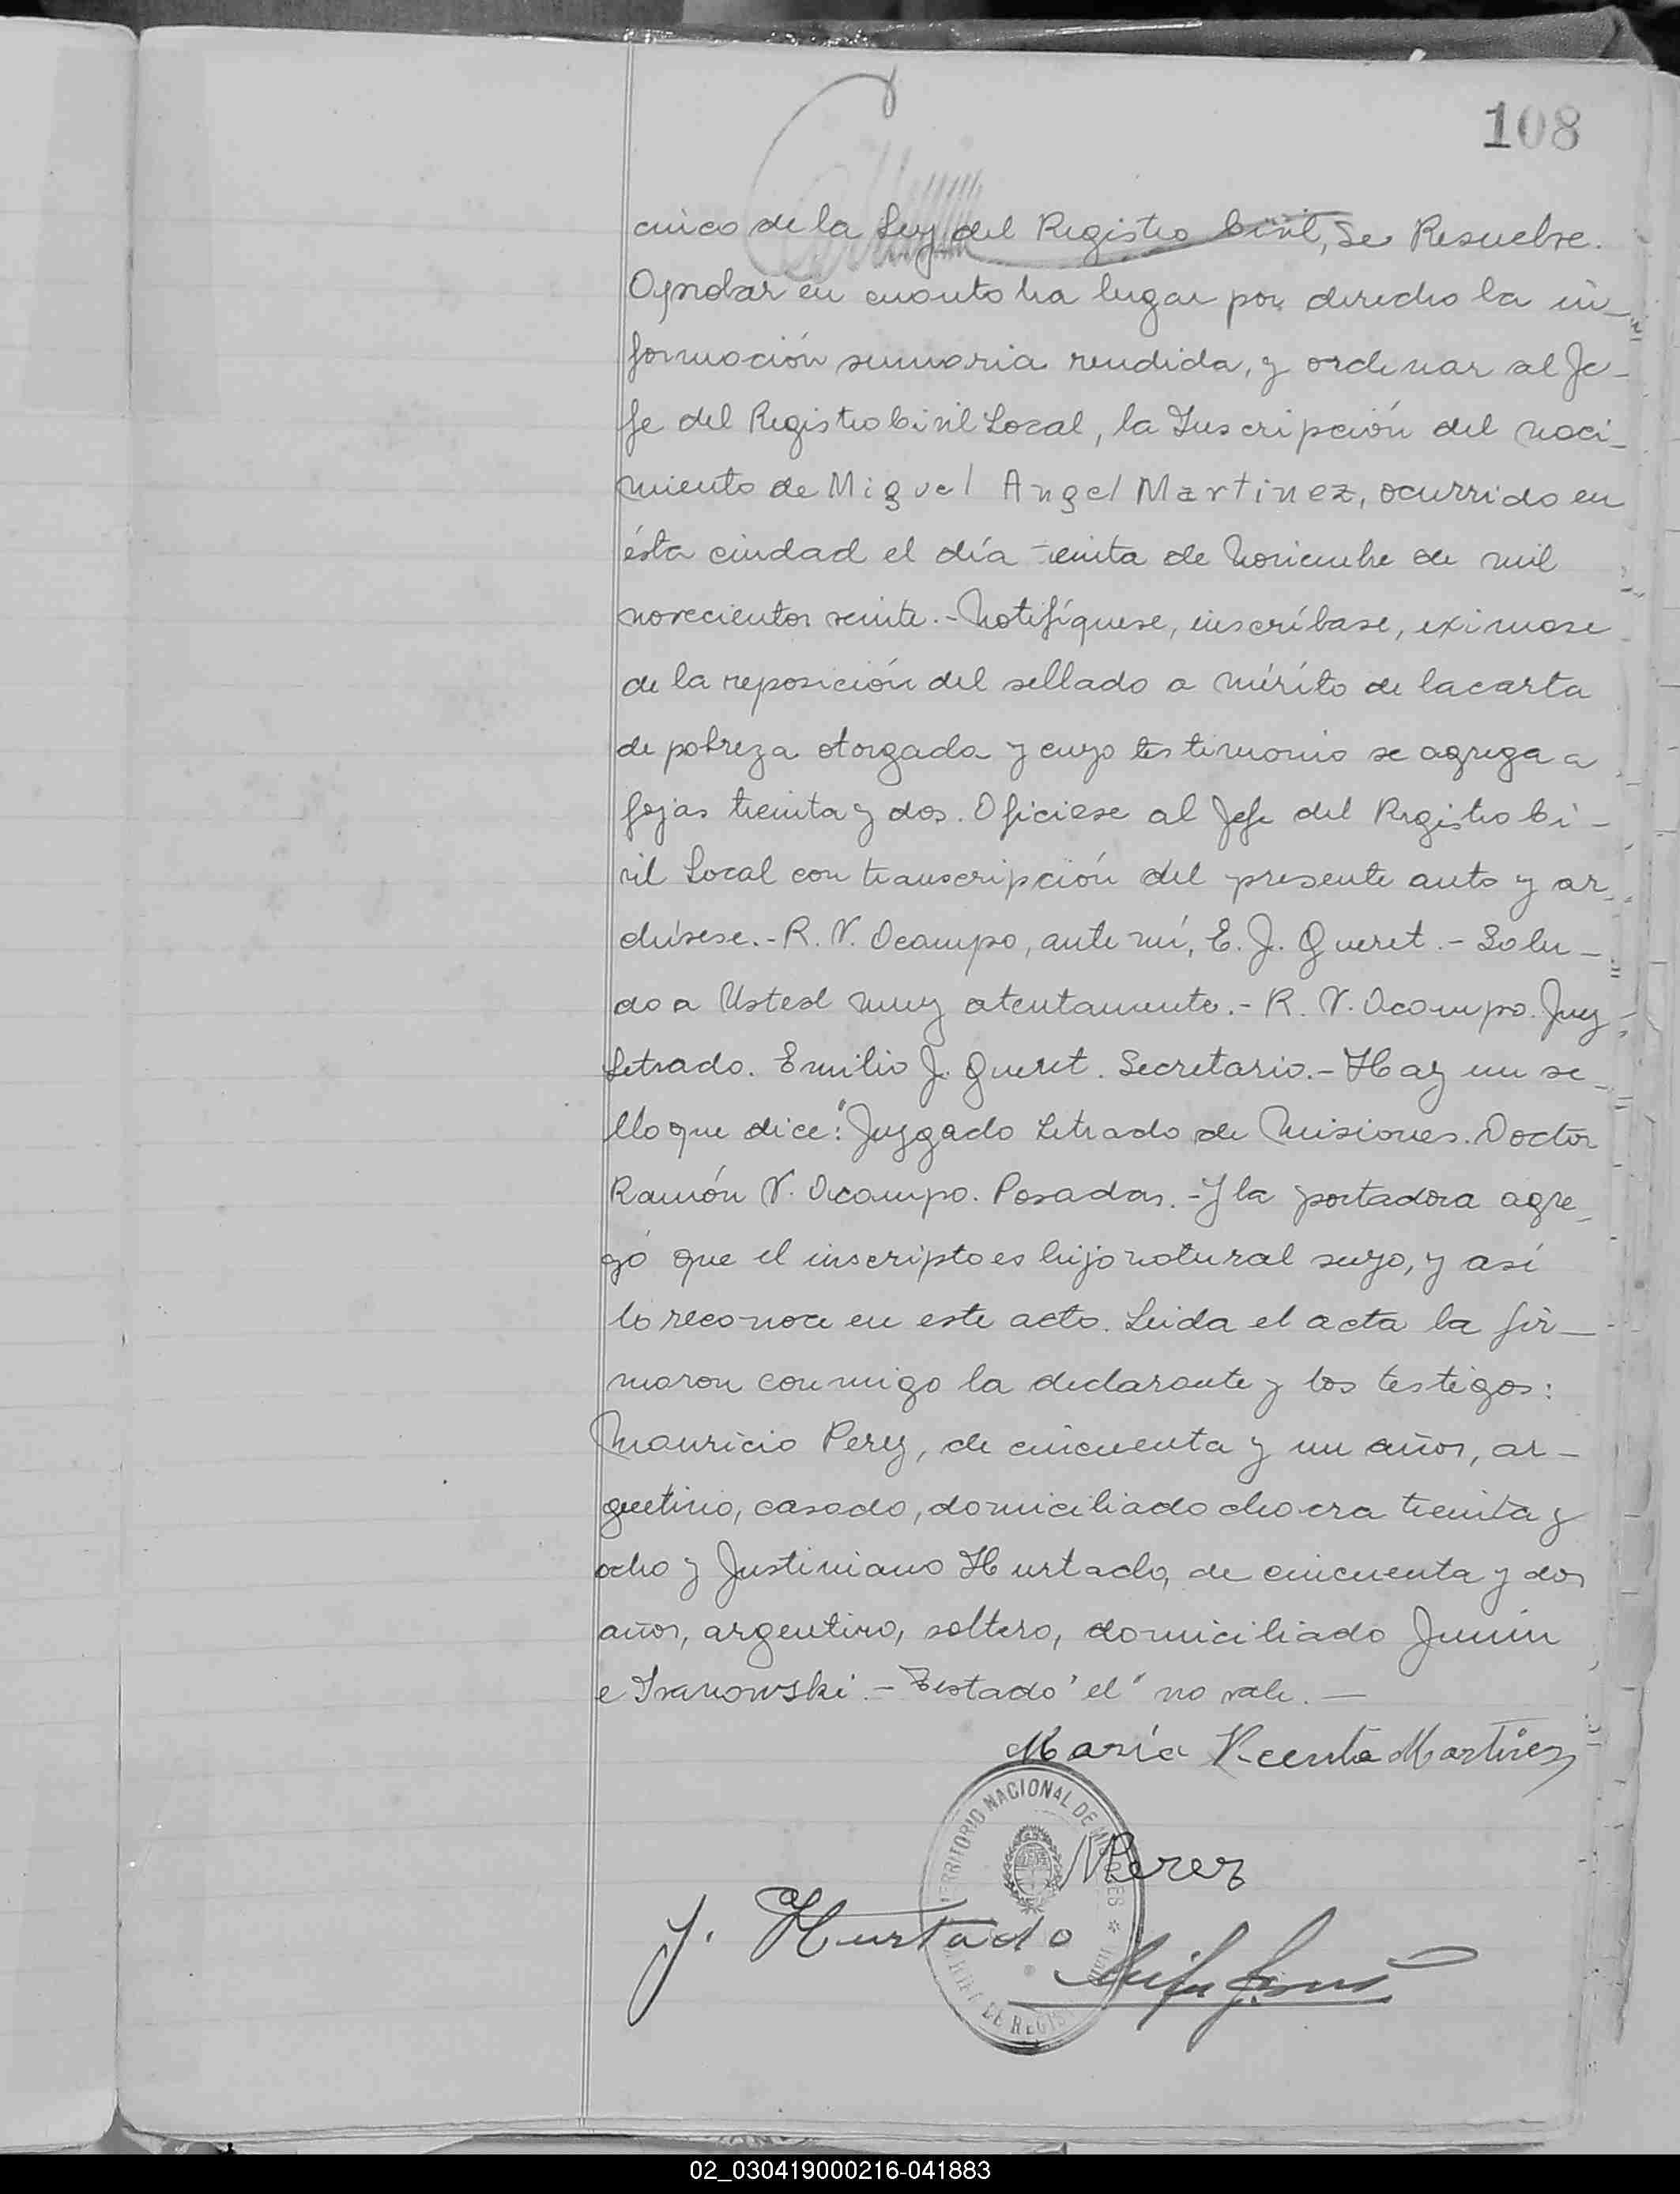 108
cinco de la Ley del Registro Civil, Se Resuelve.
Aprobar en cuanto ha lugar por derecho la in-
formación sumaria rendida, y ordenar al Je-
fe del Registro Civil Local, la Inscripción del naci-
miento de Miguel Angel Martinez, ocurrido en
ésta ciudad el día treinta de Noviembre de mil
novecientos veinte.- Notifíquese, inscríbase, eximase
de la reposición del sellado a mérito de la carta
de pobreza otorgada y cuyo testimonio se agrega a
fojas treinta y dos. Oficiese al Jefe del Registro Ci-
vil Local con transcripción del presente auto y ar-
chívese.- R. V. Ocampo, ante mí, E. J. Queret.- Salu-
do a Usted muy atentamente.- R. V. Ocampo. Juez
Letrado. Emilio J. Queret. Secretario.- Hay un se-
llo que dice: "Juzgado Letrado de Misiones. Doctor
Ramón V. Ocampo. Posadas.- Y la portadora agre-
gó que el inscripto es hijo natural suyo, y así
lo reconoce en este acto. Leida el acta la fir-
maron conmigo la declarante y los testigos:
Mauricio Perez, de cincuenta y un años, ar-
gentino, casado, domiciliado chacra treinta y
ocho y Justiniano Hurtado, de cincuenta y dos
años, argentino, soltero, domiciliado Junin
e Ivanowski.- Testado "el" no vale.-
María Vicenta Martinez
TERRITORIO NACIONAL DE MISIONES
MPerez
J. Hurtado
DE REGIS
02_030419000216-041883